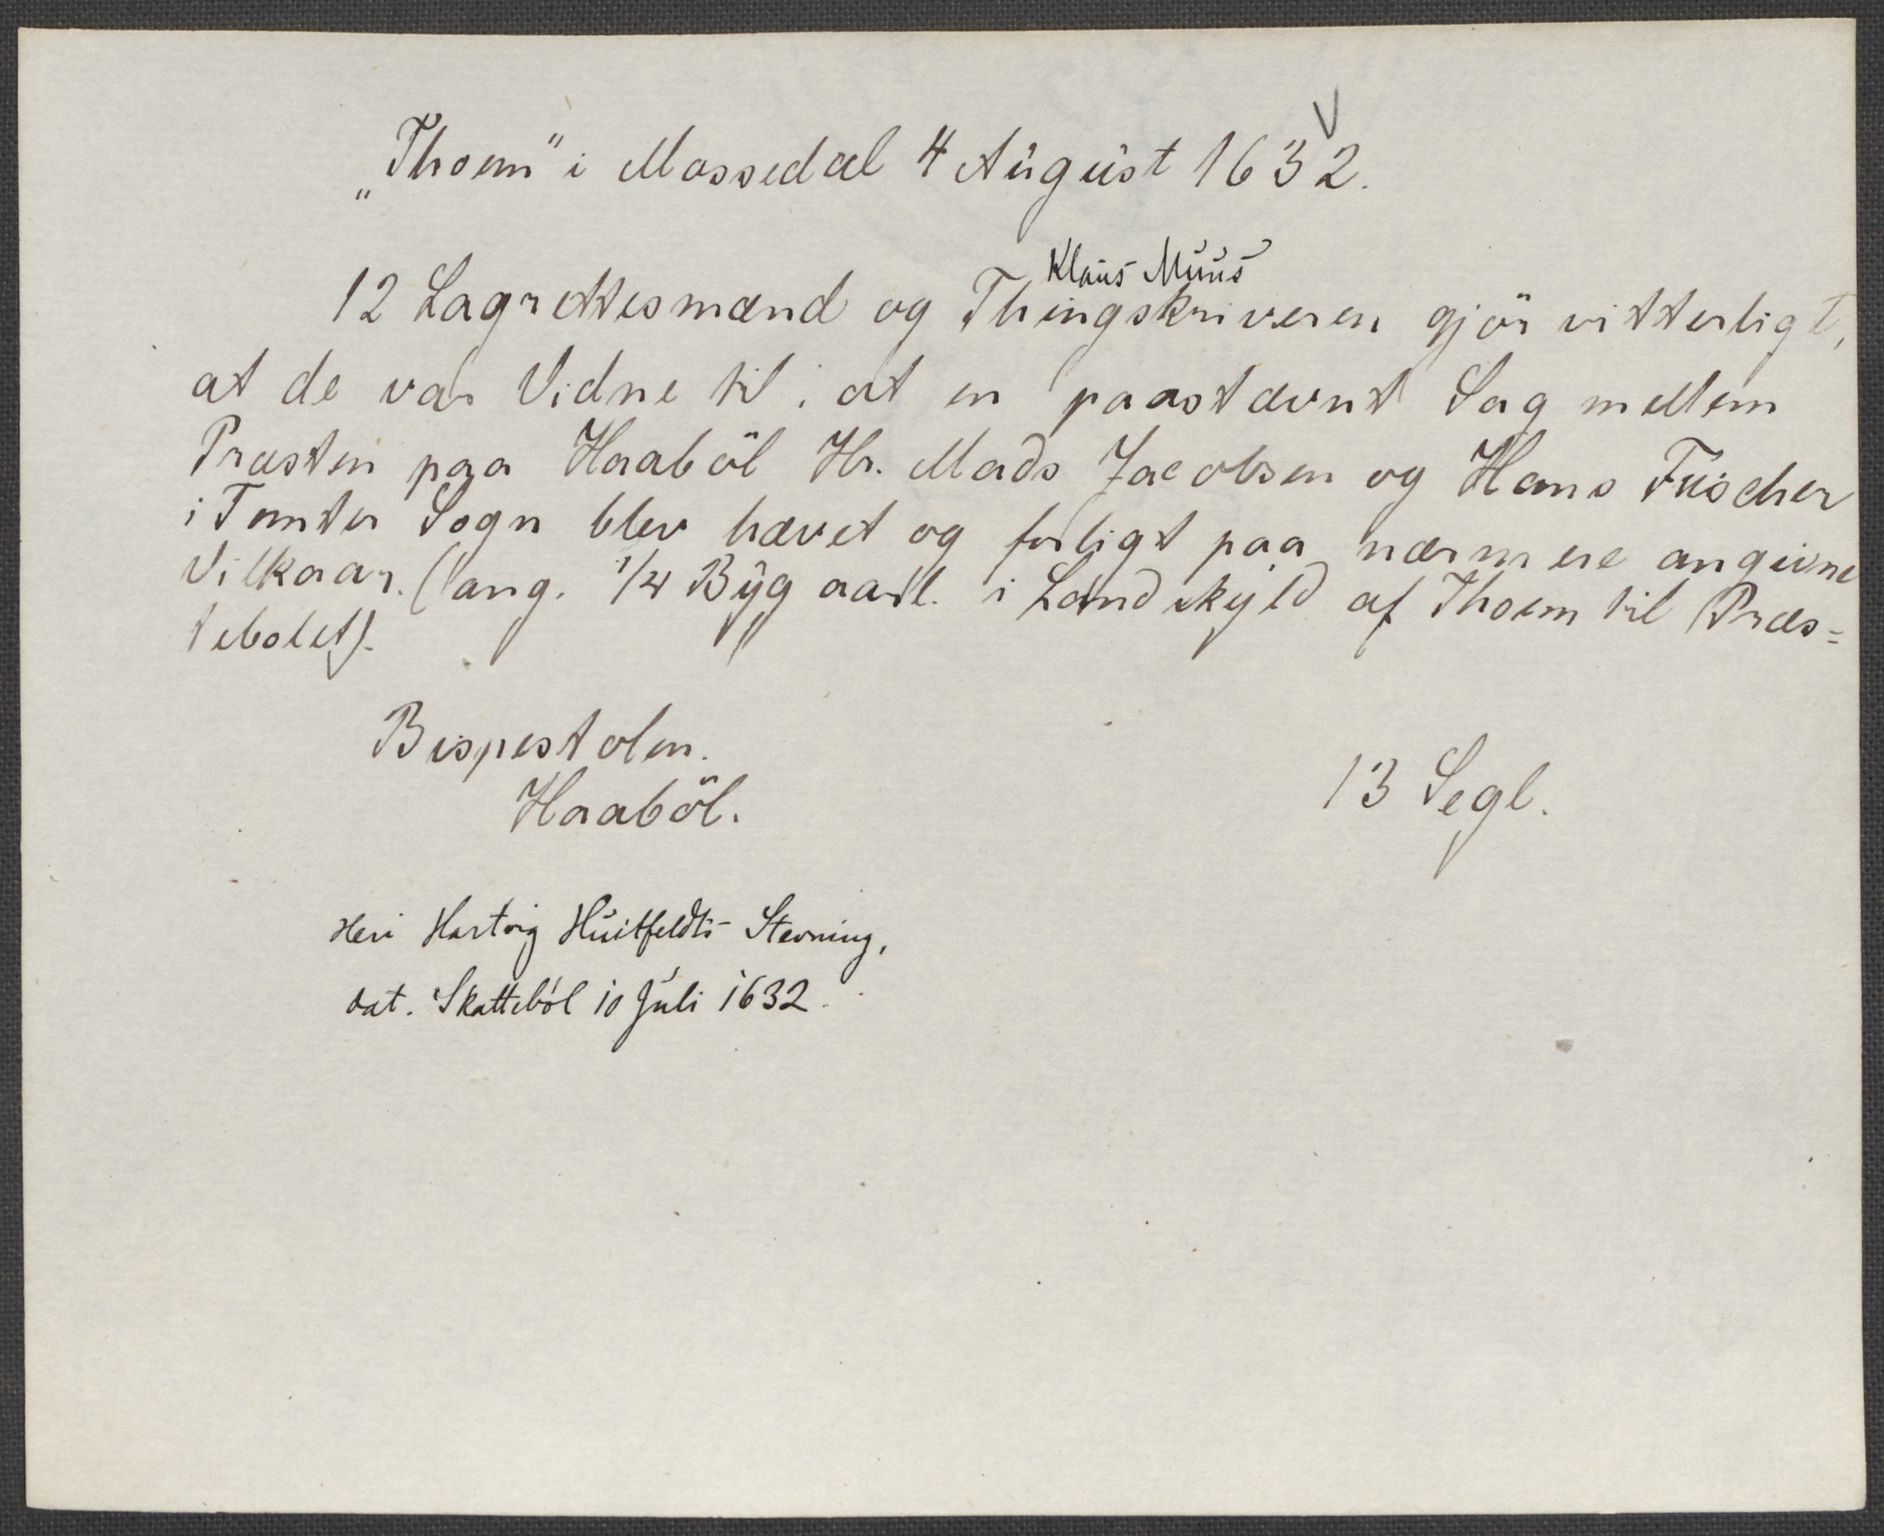 „Thoem“ i Mossedal 4 August 1632.
Klaus Muus
12 Lagrettesmænd og Thingskriveren gjör vitterligt,
at de var Vidne til, at en paastævnt Sag mellem
Præsten paa Haaböl Hr. Mads Jacobsen og Hans Fuscher
i Tomter Sogn blev hævet og forligt paa nærmere angivne
Vilkaar. (ang. 1/4 Byg aarl. i Landskyld af Thoem til Præs=
tebolet).
Bispestolen.
Haaböl.
13 Segl.
Heri Hartvig Huitfeldts Stevning,
dat. Skatteböl 10 Juli 1632.